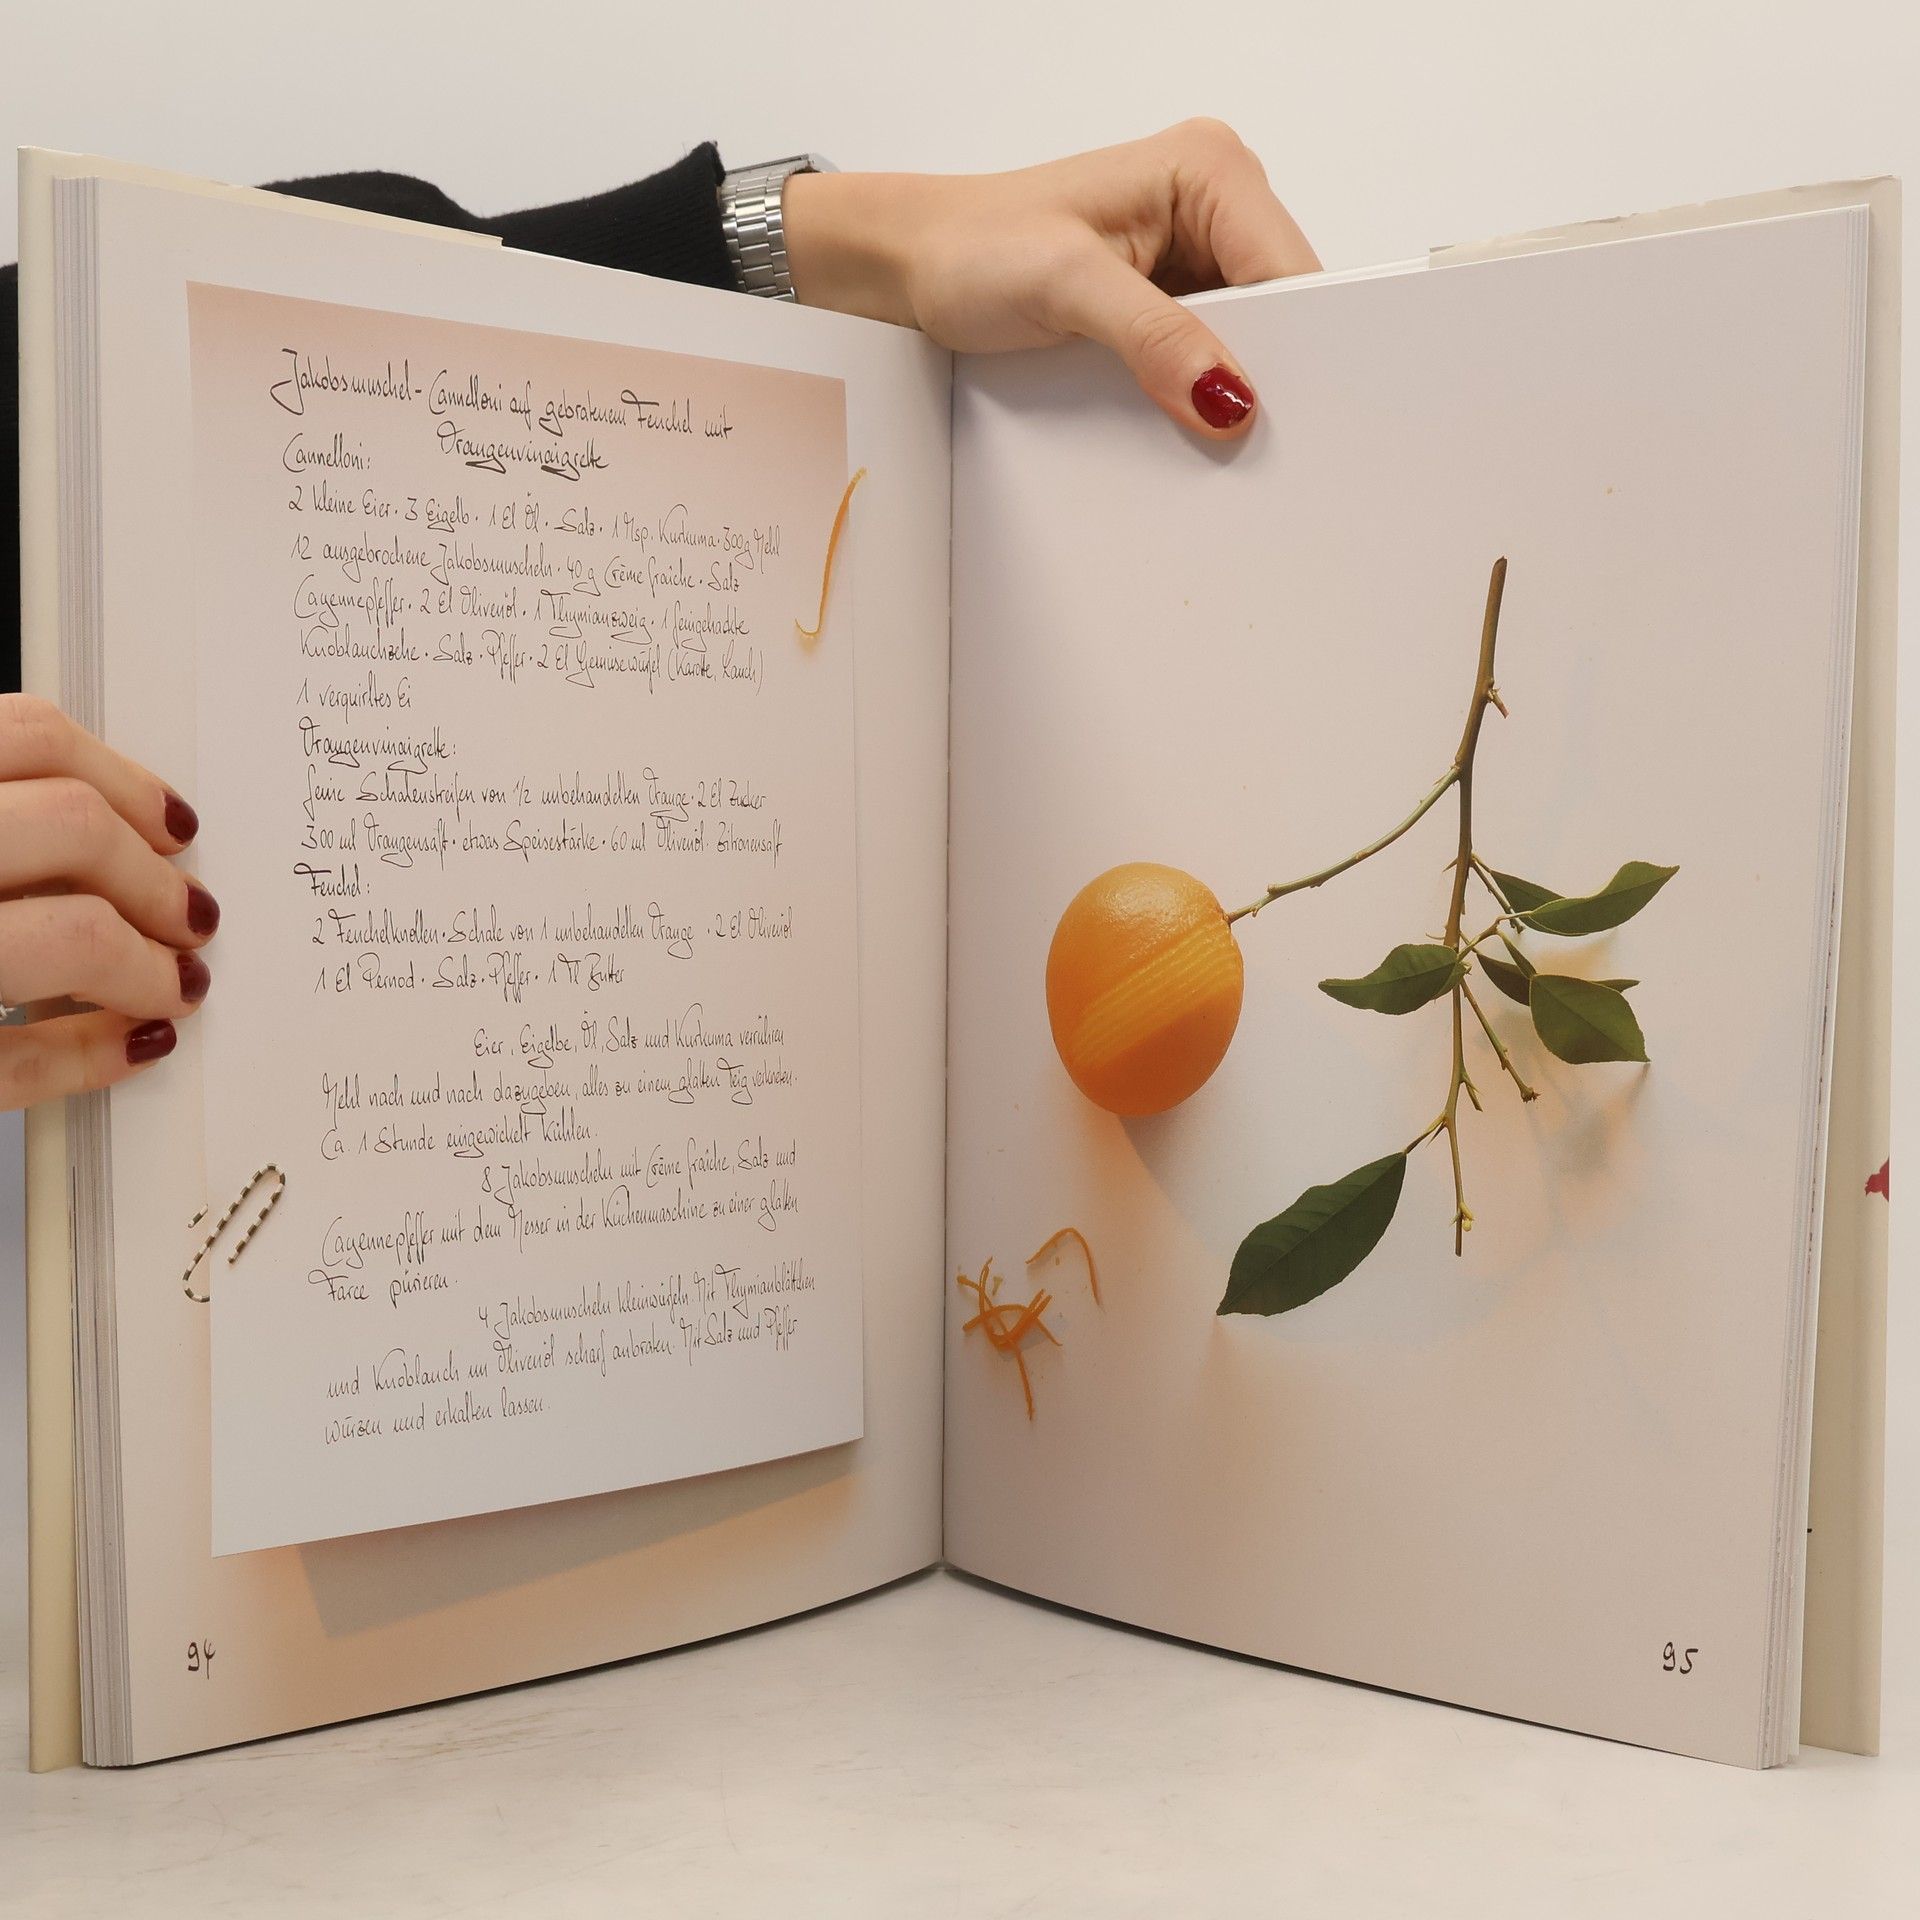 Jakobsmuschel-Cannelloni auf gebratenem Fenchel mit
Orangenvinaigrette
Cannelloni:
2 kleine Eier · 3 Eigelb · 1 El Öl · Salz · 1 Msp. Kurkuma · 300g Mehl
12 ausgebrochene Jakobsmuscheln · 40 g Crème fraîche · Salz
Cayennepfeffer · 2 El Olivenöl · 1 Thymianzweig · 1 feingehackte
Knoblauchzehe · Salz · Pfeffer · 2 El Gemüsewürfel (Karotte, Lauch)
1 verquirltes Ei
Orangenvinaigrette:
feine Schalenstreifen von 1/2 unbehandelten Orange · 2 El Zucker
300 ml Orangensaft · etwas Speisestärke · 60 ml Olivenöl · Zitronensaft
Fenchel:
2 Fenchelknollen · Schale von 1 unbehandelten Orange · 2 El Olivenöl
1 El Pernod · Salz · Pfeffer · 1 Tl Butter
Eier, Eigelbe, Öl, Salz und Kurkuma verrühren
Mehl nach und nach dazugeben, alles zu einem glatten Teig verkneten.
Ca. 1 Stunde eingewickelt kühlen.
8 Jakobsmuscheln mit Crème fraîche, Salz und
Cayennepfeffer mit dem Messer in der Küchenmaschine zu einer glatten
Farce pürieren.
4 Jakobsmuscheln kleinwürfeln. Mit Thymianblättchen
und Knoblauch im Olivenöl scharf anbraten. Mit Salz und Pfeffer
würzen und erkalten lassen.
94
95